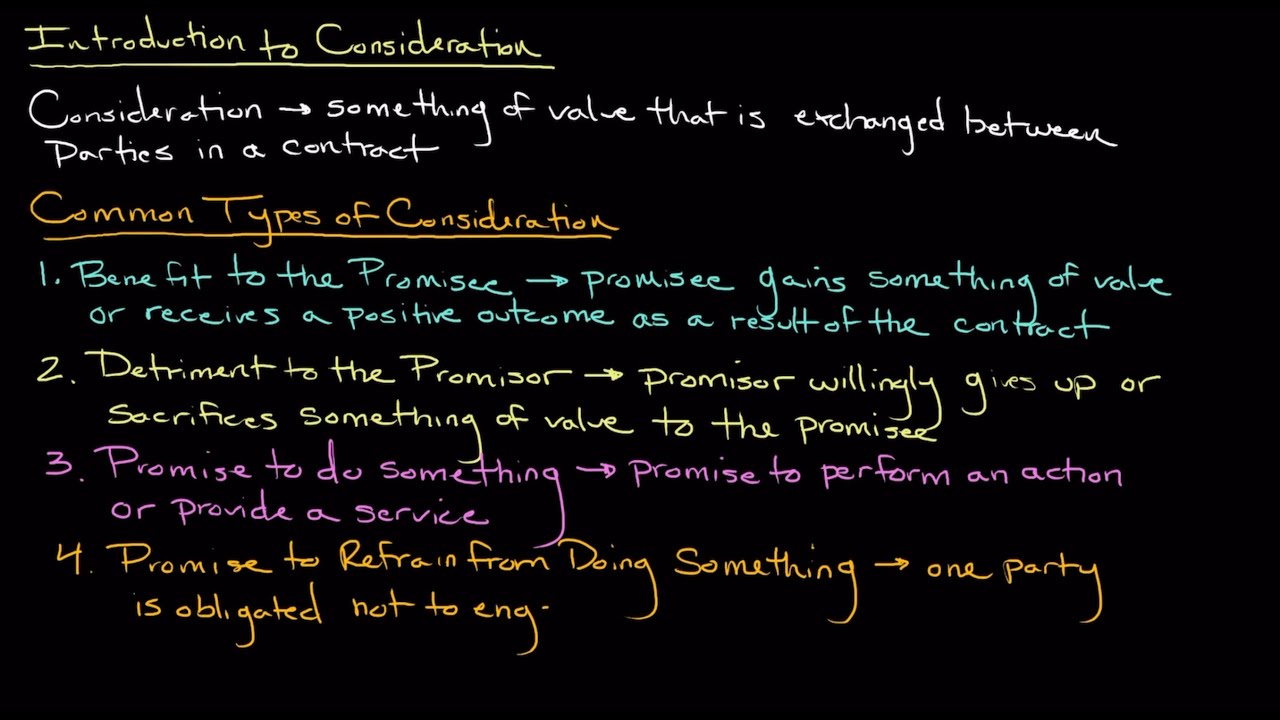 Introduction to Consideration
Consideration → something of value that is exchanged between
parties in a contract
Common Types of Consideration
1. Benefit to the Promisee → promisee gains something of value
or receives a positive outcome as a result of the contract
2. Detriment to the Promisor → promisor willingly gives up or
sacrifices something of value to the promisee
3. Promise to do something → promise to perform an action
or provide a service
4. Promise to Refrain from Doing Something → one party
is obligated not to eng